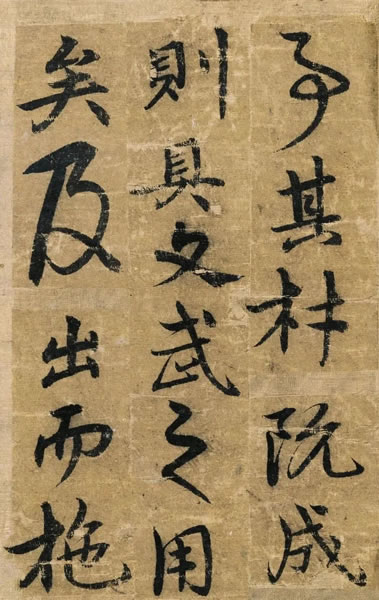 其材既成
則具文武之用
矣及出而施